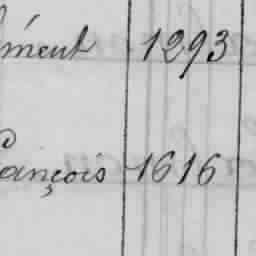 ément 1293
ançois 1616